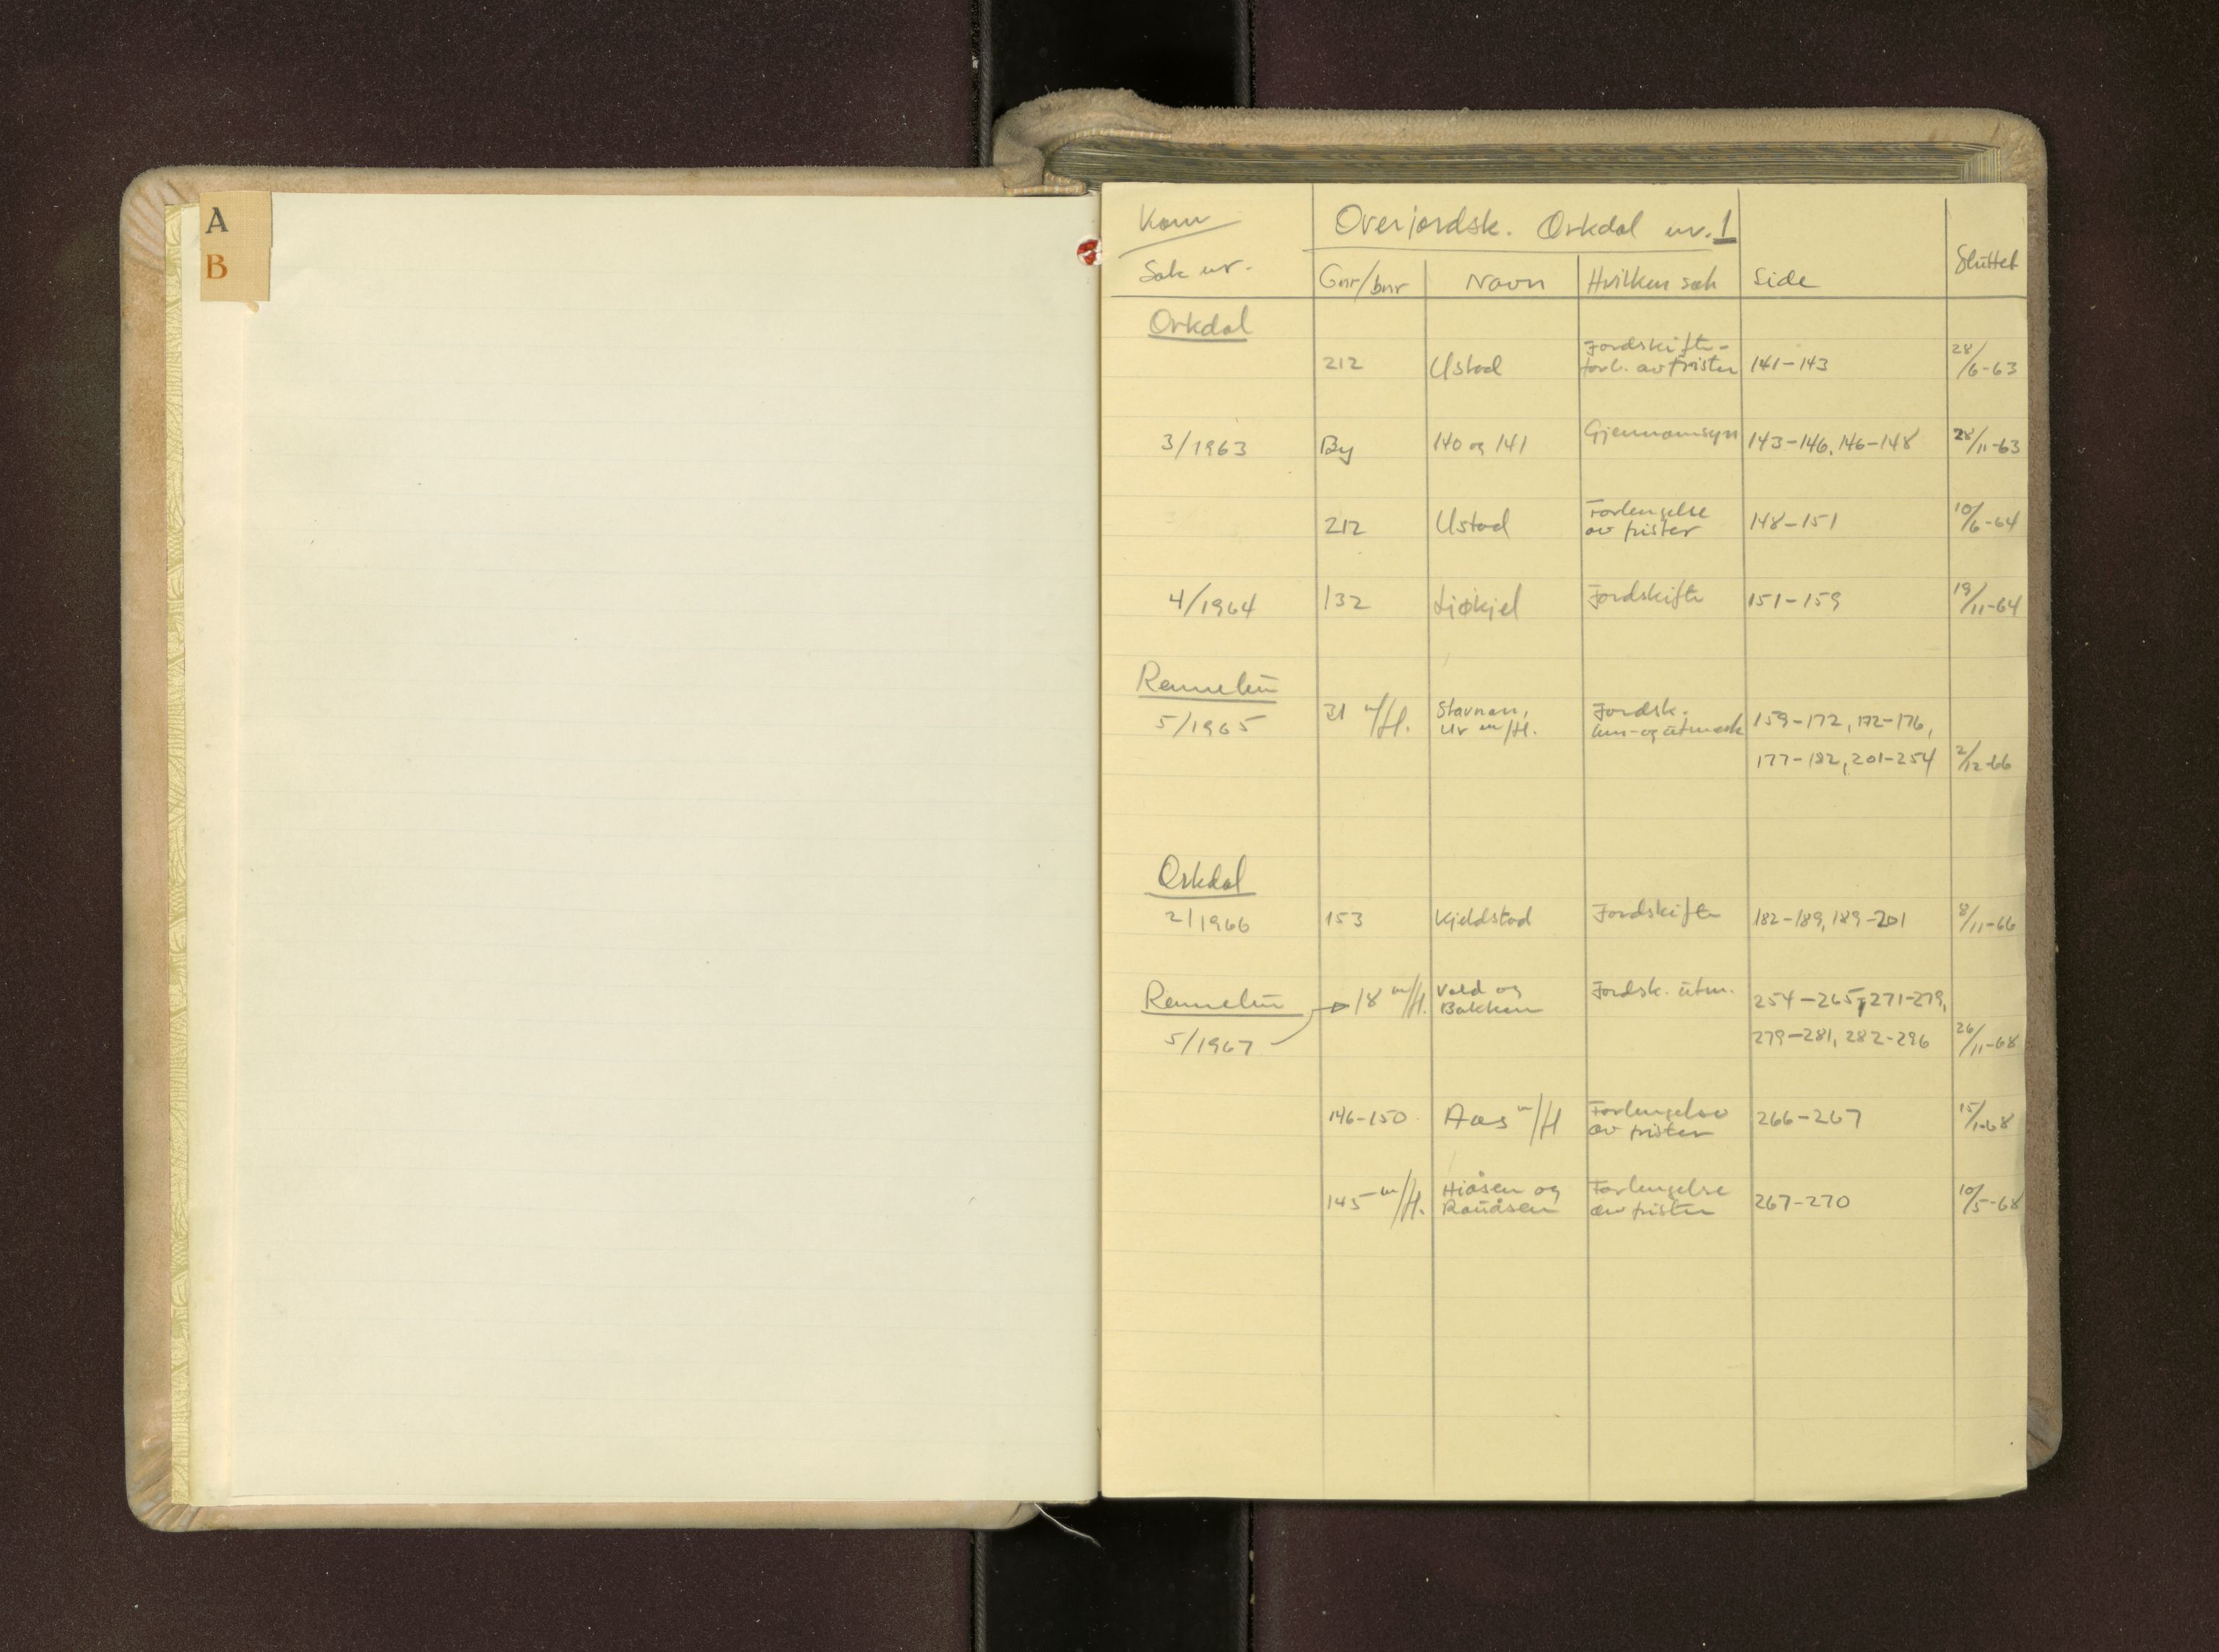 A
B
Kom
Overjordsk. Orkdal nr. 1
Sak nr.
Gnr/bnr Navn Hvilken sak Side Sluttet
Orkdal
Jordskifte-
212 Ustad forl. av frister 141-143 28/6-63
3/1963 By 140 og 141 Gjennomsyn 143-146, 146-148 28/11-63
Forlengelse
212 Ustad av frister 148-151 10/6-64
4/1964 132 Ljøkjel Jordskifte 151-159 19/11-64
Rennebu
31 m/fl. Stavnan, Jordsk.
5/1965 Ur m/fl. inn- og utmark 159-172, 172-176,
177-182, 201-254 2/12-66
Orkdal
2/1966 153 Kjeldstad Jordskifte 182-189, 189-201 8/11-66
Rennebu 18 m/fl. Vold og Jordsk. utm. 254-265, 271-279,
Bakken
5/1967 279-281, 282-296 26/11-68
Forlengelse
146-150 Aas m/fl av frister 266-267 15/1-68
Hiåsen og Forlengelse
145 m/fl. Rauåsen av frister 267-270 10/5-68